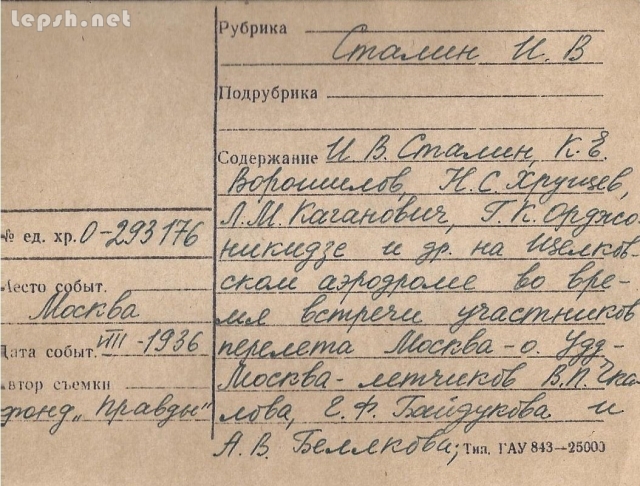 lepsh.net
Рубрика
Сталин И. В
Подрубрика
Содержание И В. Сталин, К. Е.
Ворошилов, Н. С. Хрущев,
Л. М. Каганович, Г. К. Орджо-
никидзе и др. на Щелков-
ском аэродроме во вре-
мя встречи участников
перелета Москва - о. Удд -
Москва - летчиков В. П. Чка
лова, Г. Ф. Байдукова и
А. В. Беллкова;
Тип. ГАУ 843—25000
№ ед. хр. 0-293176
Место событ.
Москва
Дата событ. VIII - 1936
Автор съемки
фонд „Правды"